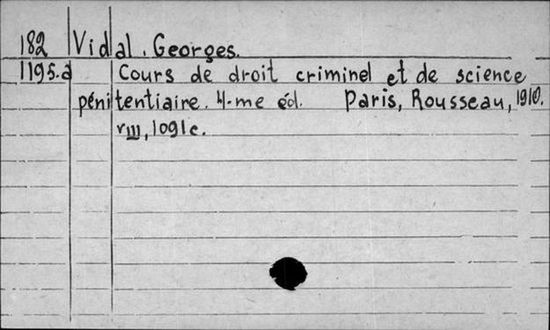 182 Vidal, Georges.
1195.a Cours de droit criminel et de science
pénitentiaire. 4-me éd. Paris, Rousseau, 1910.
VIII, 1091c.